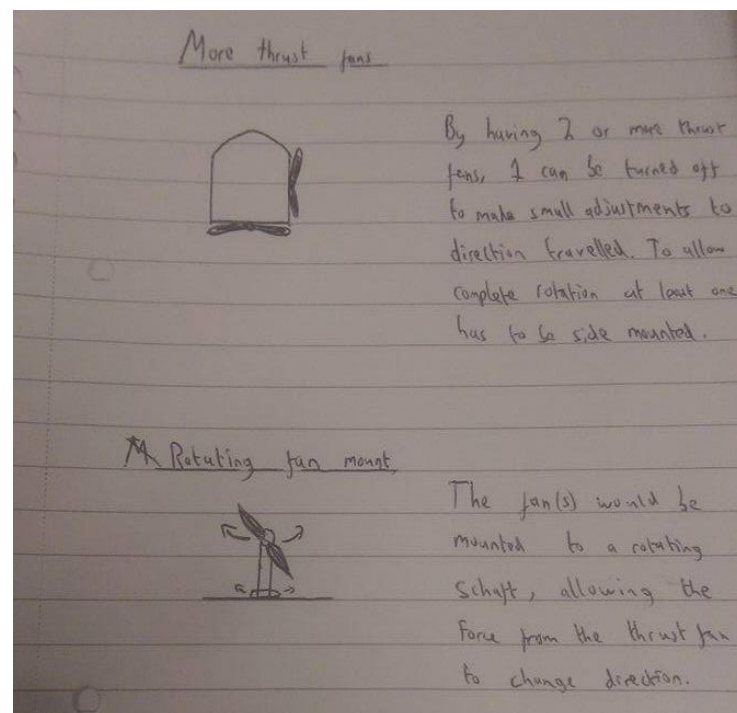 More thrust fans
By having 2 or more thrust
fans, 1 can be turned off
to make small adjustments to
direction travelled. To allow
complete rotation at least one
has to be side mounted.
Rotating fan mount
The fan(s) would be
mounted to a rotating
schaft, allowing the
force from the thrust fan
to change direction.